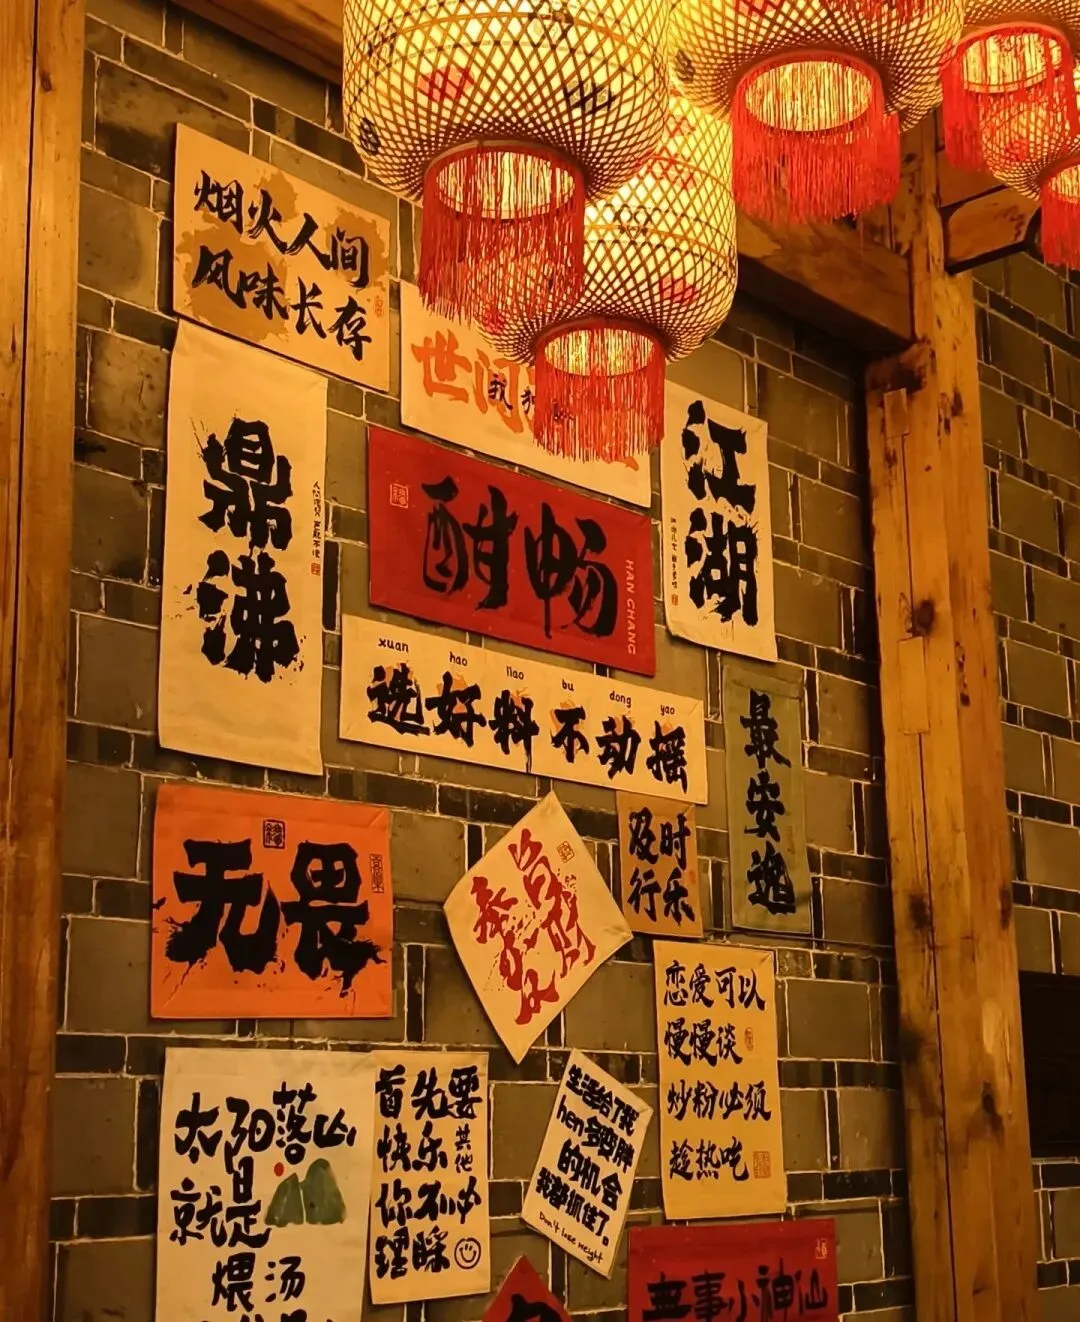 烟火人间
风味长存
世间
我
鼎沸
酣畅
HAN CHANG
江湖
xuan hao liao bu dong yao
选好料不动摇
最安逸
无畏
及时
行乐
恋爱可以
慢慢谈
炒粉必须
趁热吃
太阳落山
就是
煨汤
首先要
快乐其他
你不必
理睬
生活给了我
hen多变胖
的机会
我都抓住了。
Don't lose weight
无事小神仙